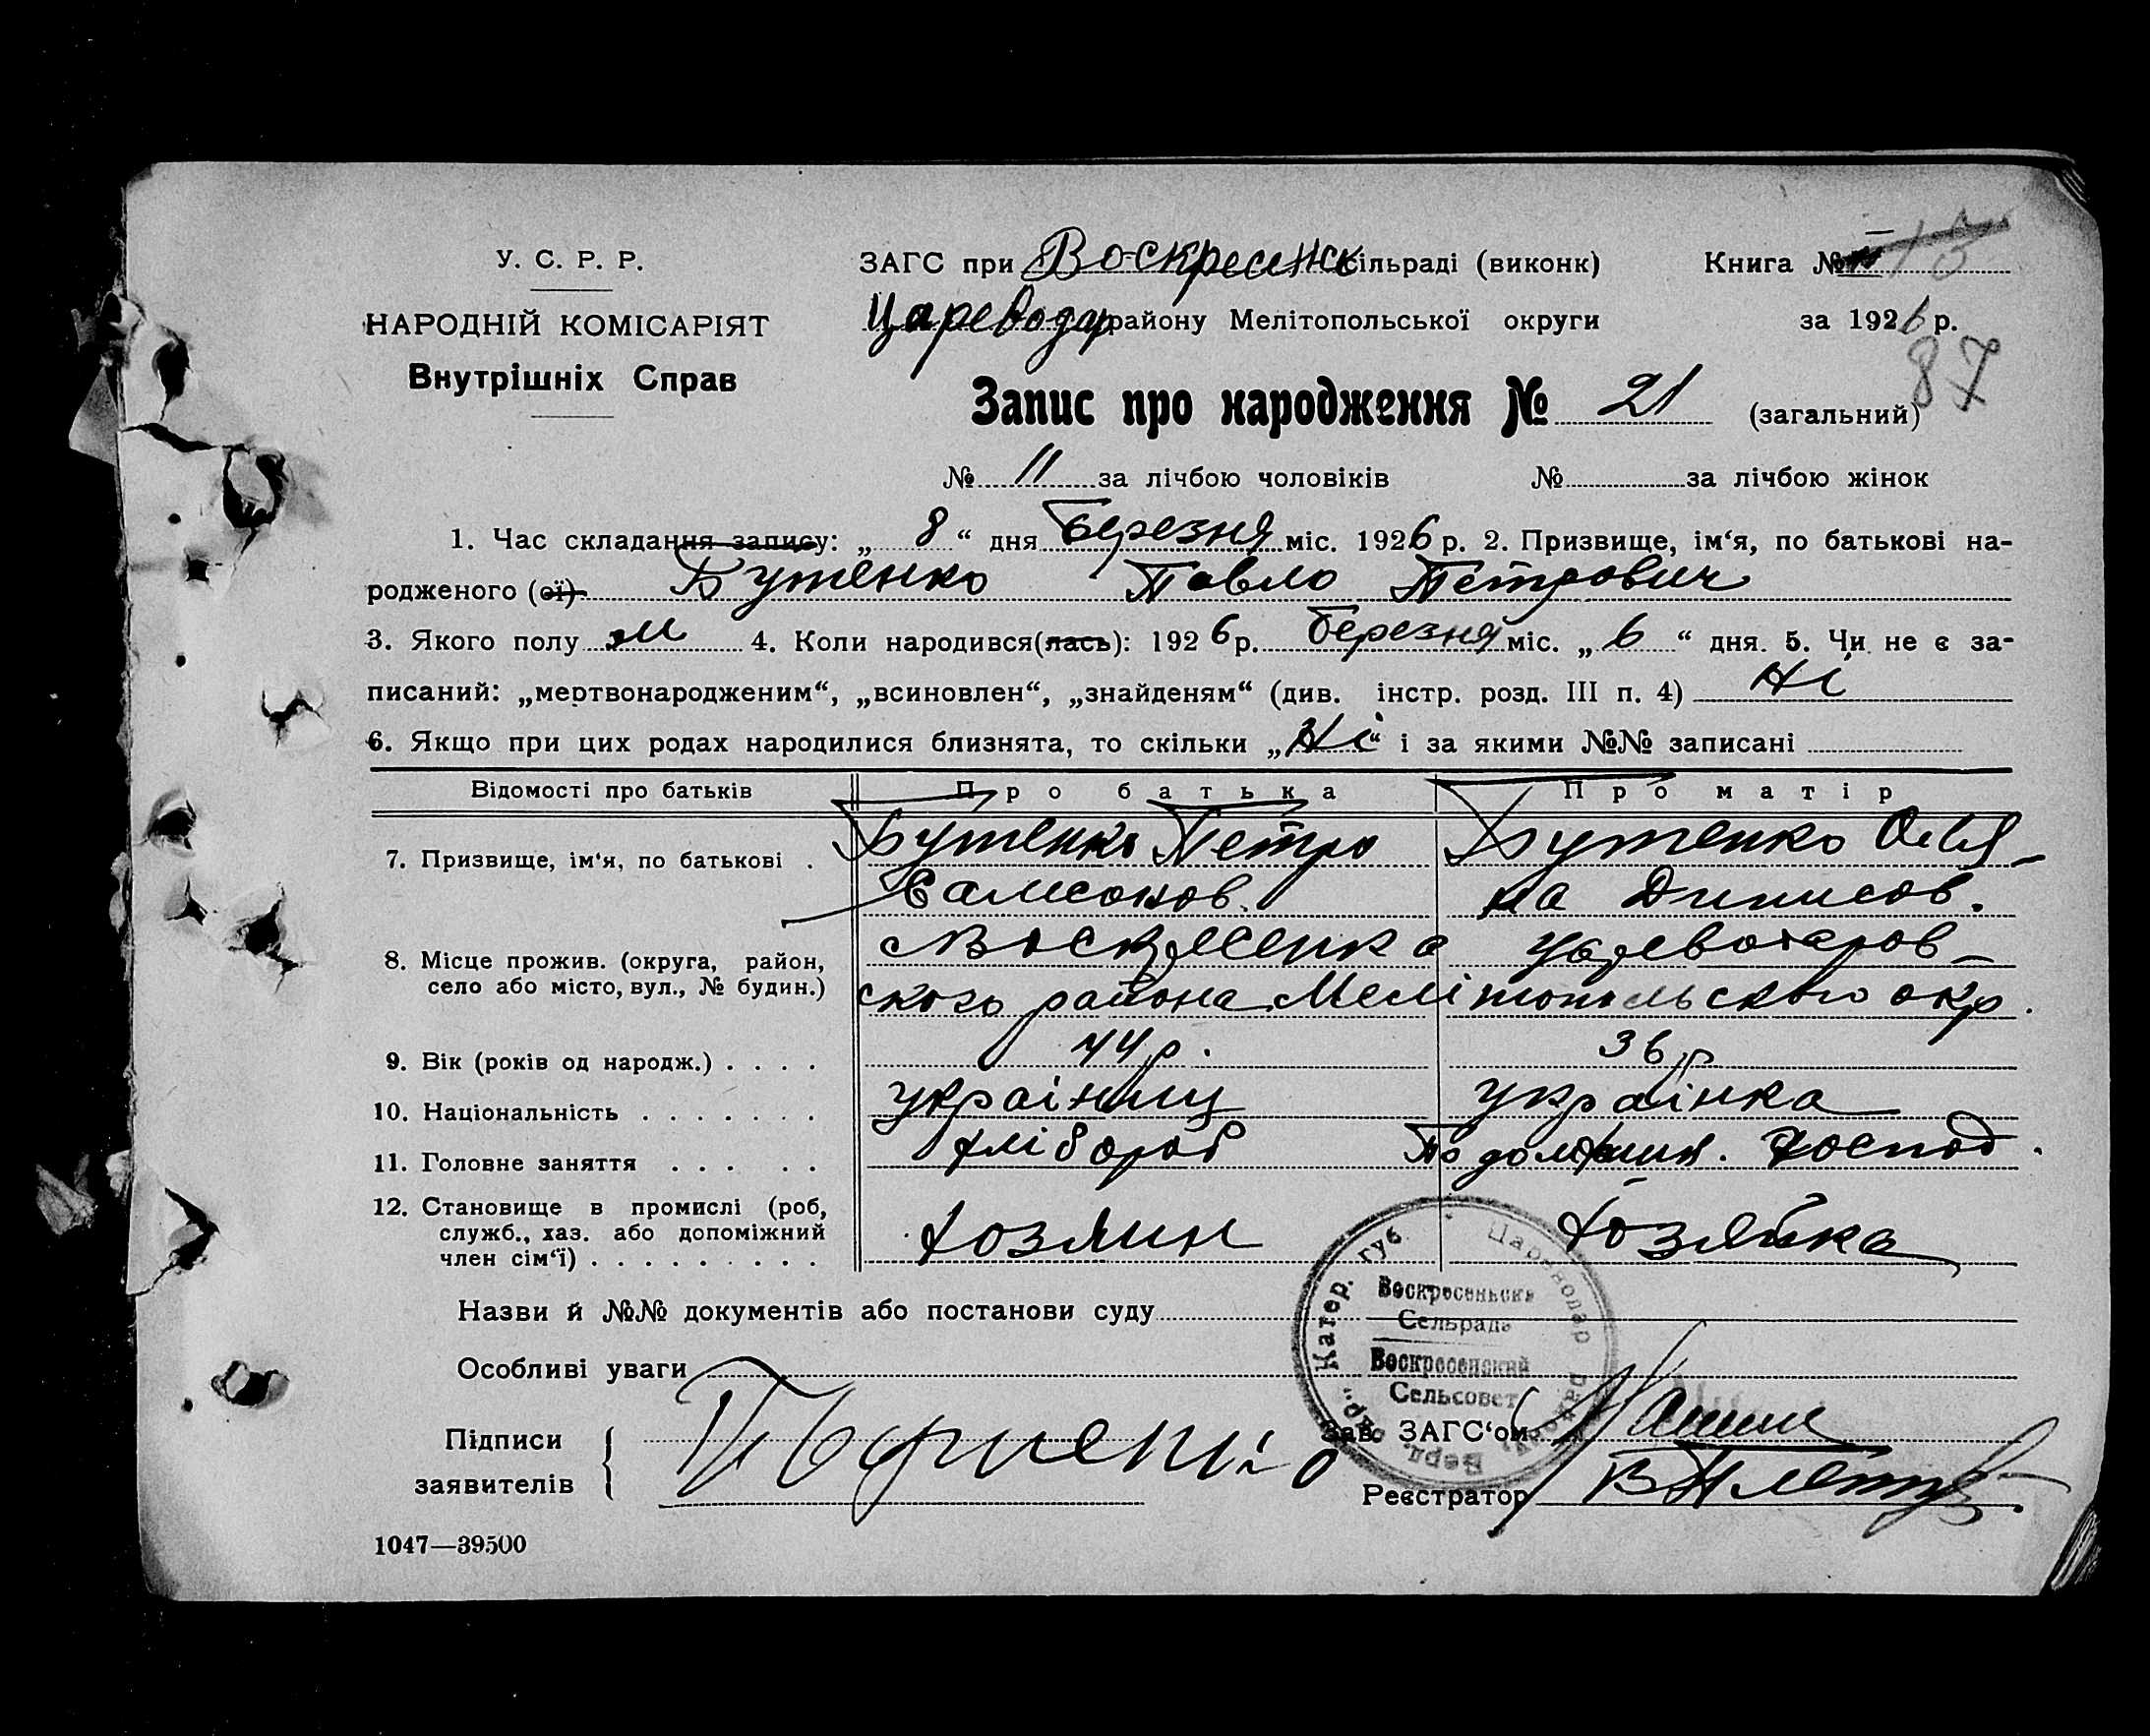 У. С. Р. Р.
НАРОДНІЙ КОМІСАРІЯТ
Внутрішніх Справ
ЗАГС при Воскресенськ сільраді (виконк)
Цареводар району Мелітопольської округи
Книга № 13
за 1926 р.
87
Запис про народження № 21 (загальний)
№ 11 за лічбою чоловіків № за лічбою жінок
1. Час складання запису: „ 8 “ дня Березня міс. 1926 р. 2. Призвище, ім‘я, по батькові на-
родженого (ої) Бутенко Павло Петрович
3. Якого полу м 4. Коли народився(лась): 1926 р. березня міс. „ 6 “ дня. 5. Чи не є за-
писаний: „мертвонародженим“, „всиновлен“, „знайденям“ (див. інстр. розд. III п. 4) Ні
6. Якщо при цих родах народилися близнята, то скільки „Ні“ і за якими №№ записані
Відомості про батьків Про батька Про матір
7. Призвище, ім‘я, по батькові . Бутенко Петро Бутенко Оль
Самсонов. на Динисов.
8. Місце прожив. (округа, район, с Воскресенка Цареводаров-
село або місто, вул., № будин.) ского района Мелітопольского окр.
9. Вік (років од народж.) . . . . 44 р. 36 р.
10. Національність . . . . . . . українец українка
11. Головне заняття . . . . . хлібороб По домашн. господ.
12. Становище в промислі (роб,
служб., хаз. або допоміжний
член сім‘ї) . . . . . . . . . хозяин хозяйка
Назви й №№ документів або постанови суду
Особливі уваги
Катер. губ. Цареводар
Воскресеньска
Сельрада
Воскресенский
Сельсовет
Підписи
заявителів
Зав. ЗАГС‘ом
Реєстратор
1047—39500